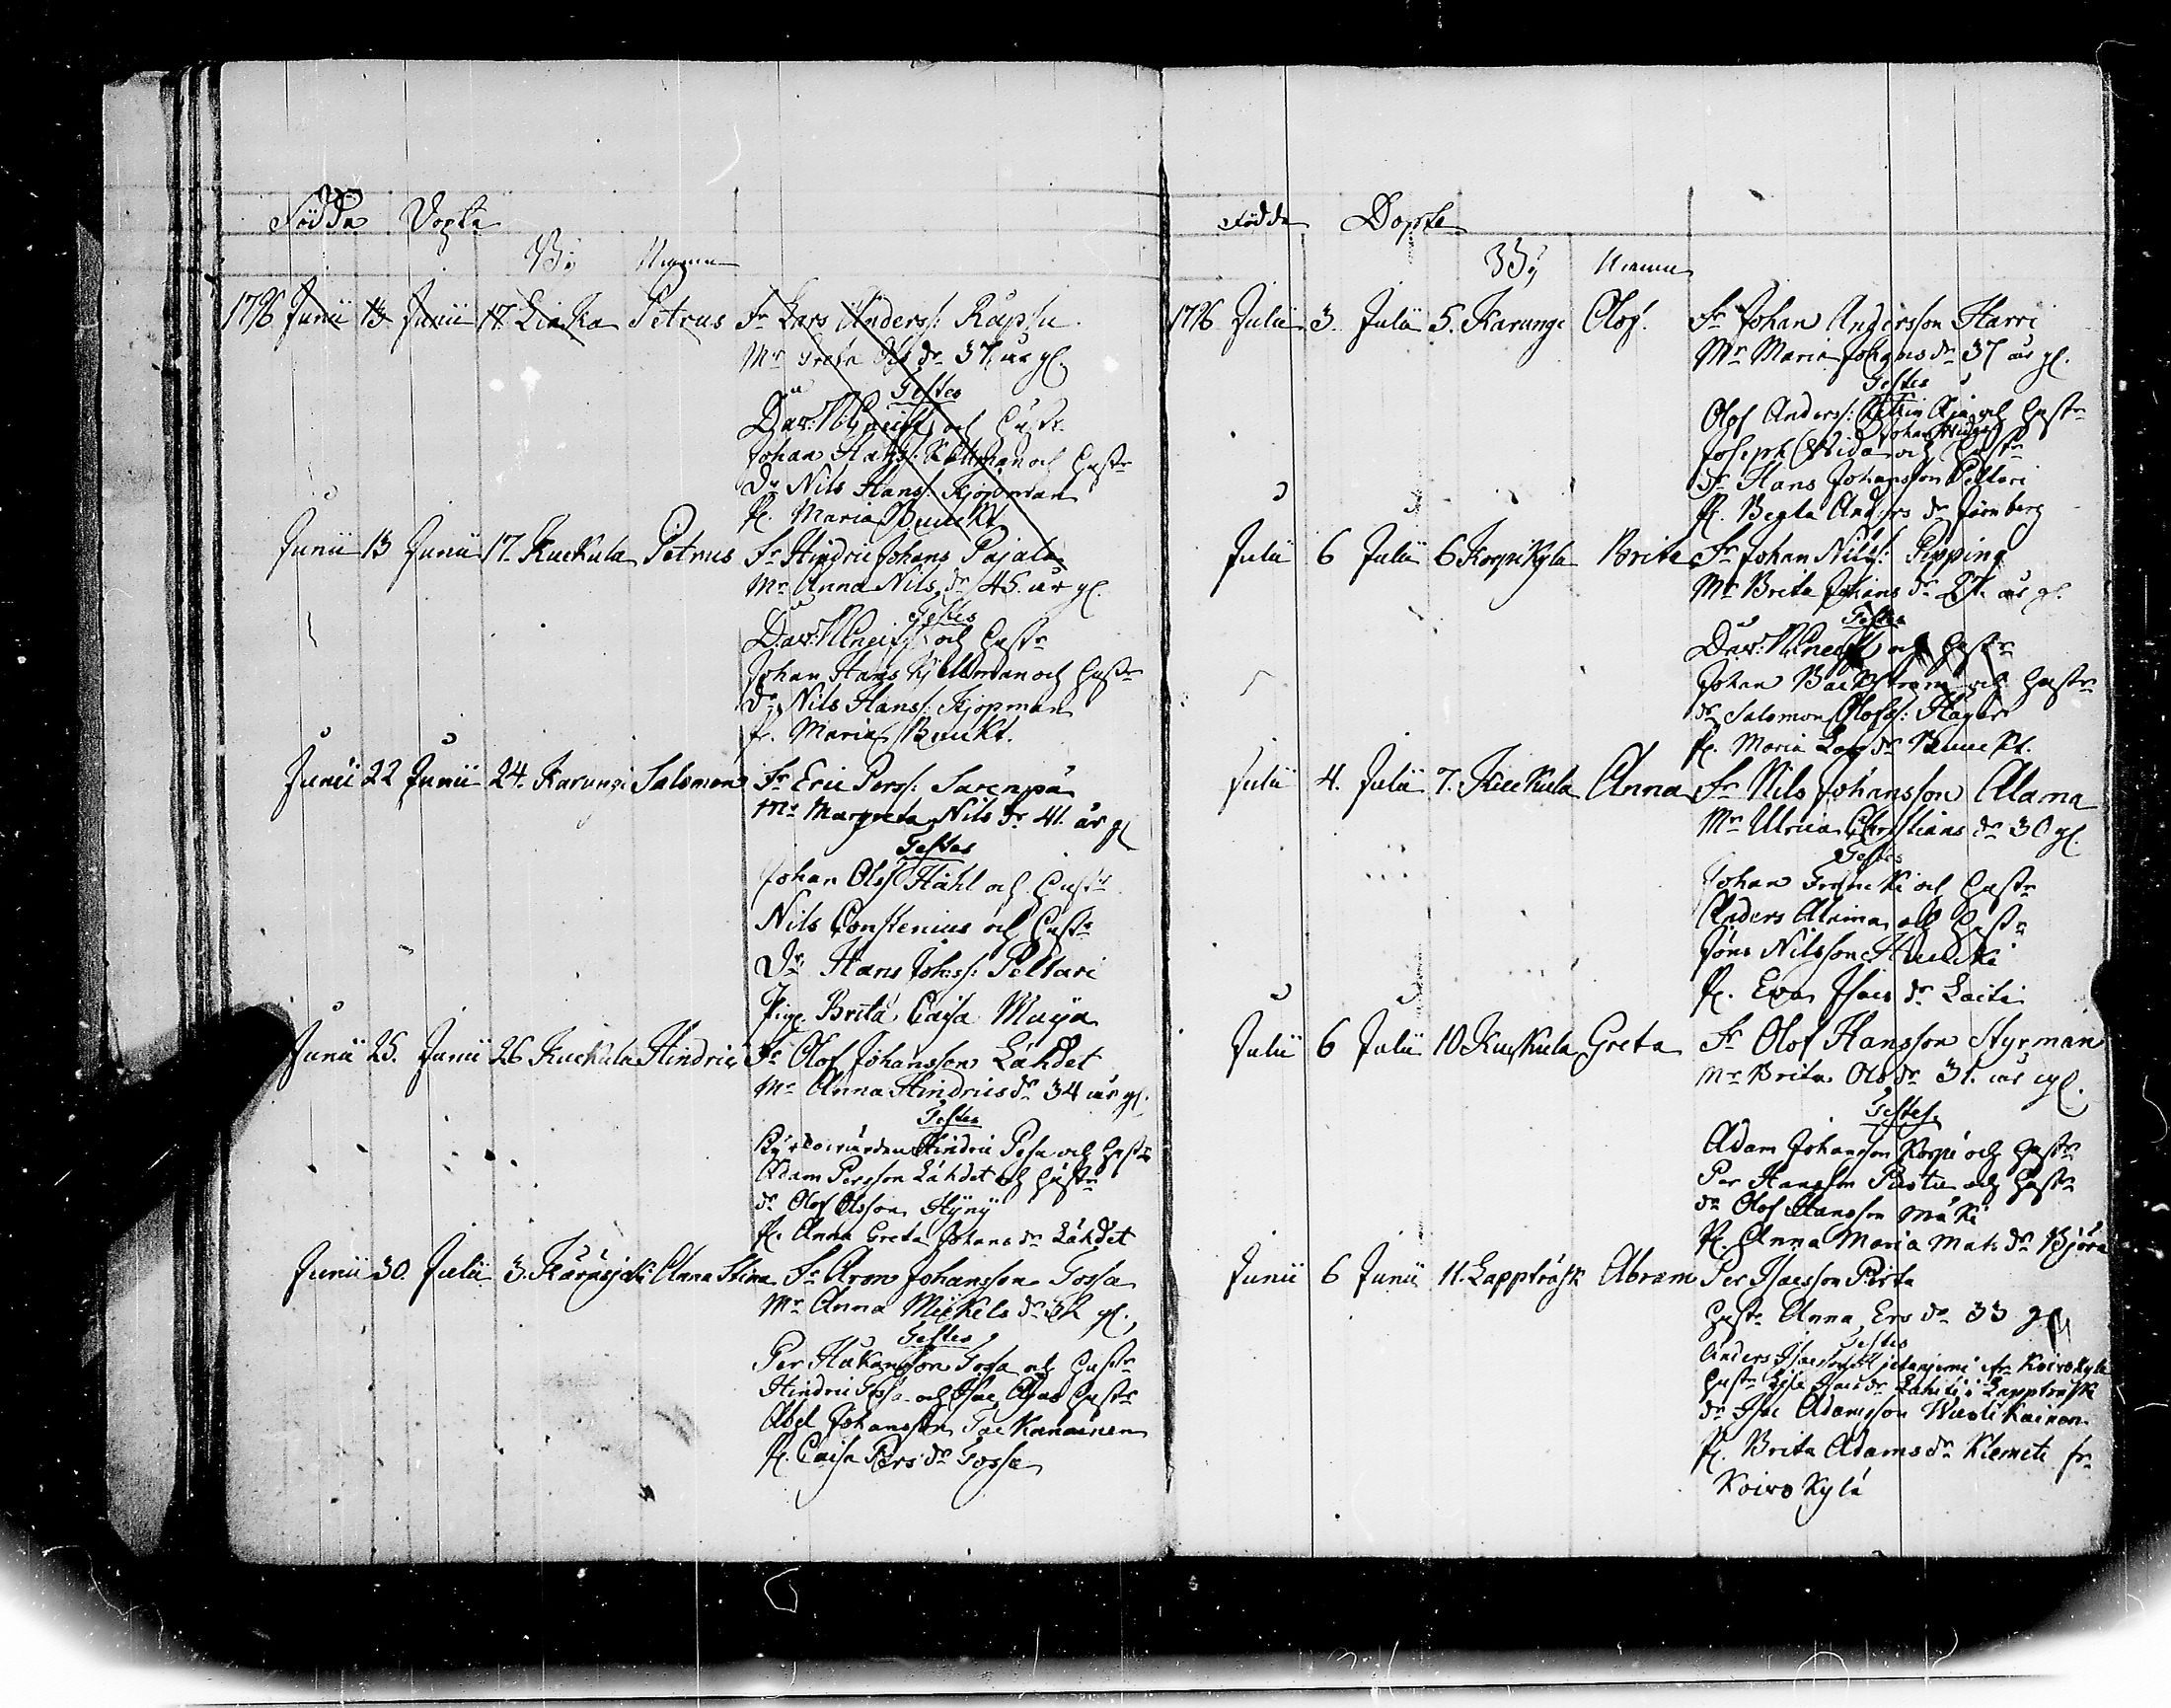 Födda Döpta
By Namn
1796 Junii 13 Junii 17. Liaka Petrus Fr Lars Anderss: Rapsu
Mr Greta Ols dr 37. år gl.
Testes
Dav: Kneiff och Hustr
Johan Hanss: Kellman och Hustr
Dr Nils Hanss: Kjöpman
P. Maria Bucht
Junii 13 Junii 17. Kuckula Petrus Fr Hindric Johans Pajala
Mr Anna Nils dr 45. år gl.
Testes
Dav: Kneiff och Hustr
Johan Hans Kjellman och Hustr
Dr Nils Hanss: Kjöpman
P. Maria Buckt.
Junii 22 Junii 24. Karungi Salomon Fr Eric Perss: Sarenpä
Mr Margreta Nils dr 41. år gl
Testes
Johan Olss Ståhl och Hustr
Nils Constenius och Hustr
Dr Hans Johss: Peltari
Pige Brita Caisa Muija
Junii 25. Junii 26 Kuckula Hindric Fr Olof Johansson Lähdet
Mr Anna Hindrics dr 34 år gl.
Testes
Hindric Pesa och Hustr
Adam Persson Lähdet och Hustr
dr Olof Olsson Hyny
P. Anna Greta Johans dr Lähdet
Junii 30. Julii 3. Karasjoki Anna Stina Fr Aron Johansson Gossa
Mr Anna Mickels dr 32 gl.
Testes
Per Håkansson Gossa och Hustr
Hindric Gossa och Isac Hustr
Abel Johansson
P. Caisa Pers dr Gossa
Födde Döpte
By Namn
1796 Julii 3. Julii 5. Karungi Olof. Fr Johan Andersson Harri
Mr Maria Johans dr 37 år gl.
Testes
Olof Anderss: och Hustr
Joseph och Hustr
Dr Hans Johansson Peltari
P. Begta Anders dr Jernberg
Julii 6 Julii 6 Korpikyla Brita Fr Johan Nilss: Pipping
Mr Brita Johans dr 27. år gl.
Testes
Dav: Kneiff och Hustr
Johan Backström och Hustr
dr Salomon Olofss: Kläger
P. Maria Lars dr Buckt.
Julii 4. Julii 7. Kuckula Anna Fr Nils Johansson Alama
Mr Ulrica Christians dr 30 gl.
Testes
Johan och Hustr
Anders Alamaa och Hustr
Jöns Nilsson
P. Eva Isacs dr Laiti
Julii 6 Julii 10 Kuckula Greta Fr Olof Hansson Styrman
Mr Brita Ols dr 31. år gl.
Testes.
Adam Johansson Korpi och Hustr
Per Hansson och Hustr
dr Olof Hansson Mäki
P. Anna Maria Mats dr Björn
Junii 6 Junii 11. Lappträsk Abram Per Isacsson Pirta
Hustr Anna Ers dr 33 gl
Testes
Anders Isacsson fr Koivokylä
Hustr Lisa Isacs dr Lahiti i Lappträsk
dr Isac Adamsson
P. Brita Adams dr Klemeti fr
Koivo Kylä